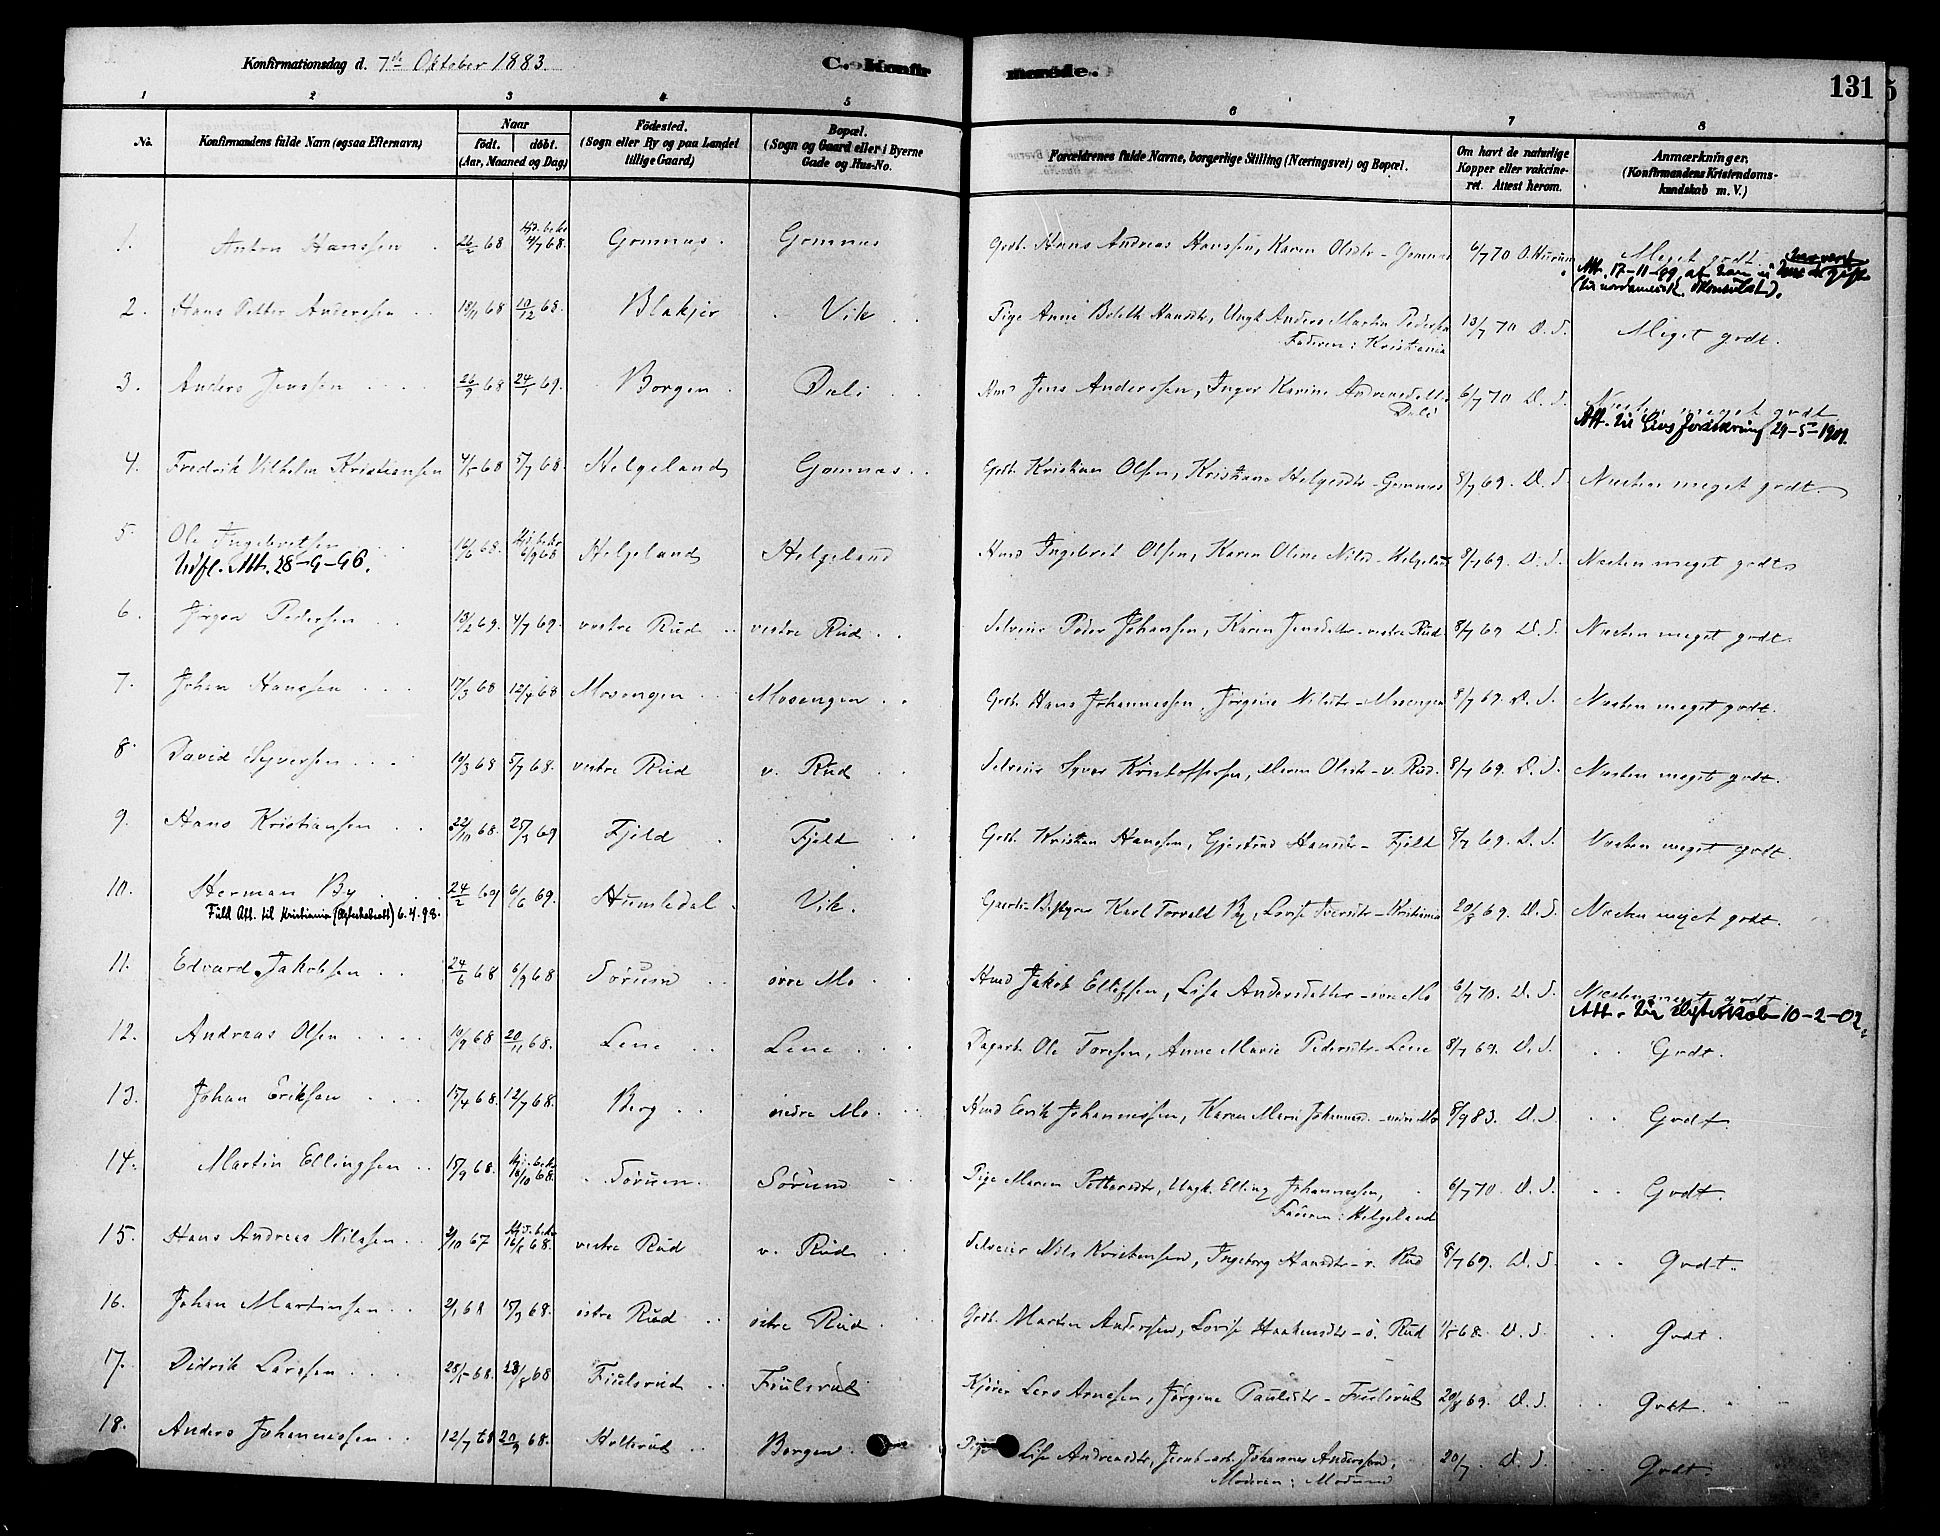 Konfirmationsdag d. 7de Oktober 1883. C. Konfirmerede. 131
1 2 3 4 5 6 7 8
No. Konfirmandens fulde Navn (ogsaa Efternavn) Naar födt. döbt. (Aar, Maaned og Dag) Födested. (Sogn eller By og paa Landet tillige Gaard) Bopæl. (Sogn og Gaard eller i Byerne Gade og Hus-No. Forældrenes fulde Navne, borgerlige Stilling (Næringsvei) og Bopæl. Om havt de naturlige Kopper eller vakcineret. Attest herom. Anmærkninger, (Konfirmandens Kristendomskundskab m. V.)
1. Anton Hanssen 26/2 68 4/7 68. Gomnæs. Gomnæs Hans Andreas Hanssen, Karen Olsdtr - Gomnæs 6/7 70 Meget godt.
Att. 17-11-89, af
2. Hans Petter Anderssen 18/11 68 10/12 68. Blakjer Vik Pige Anne Boleth Hansdtr, Ungk Anders Martin Pederssen 13/7 70 D. S. Meget godt.
Faderen: Kristiania
3. Anders Jenssen 26/9 68 24/1 69. Borgen Deli Hmd Jens Anderssen, Inger Karine Andreasdatter 6/7 70 D. S. Næsten meget godt
Deli Att. til Livsforsikring 29-5-1901.
4. Fredrik Vilhelm Kristiansen 4/5 68 5/7 68. Helgeland Gomnæs Grdb. Kristian Olsen, Kristiane Helgesdtr - Gomnæs 8/7 69. D. S. Næsten meget godt.
5. Ole Ingebretsen 68. 6/9 68 Helgeland Helgeland Hmd Ingebret Olsen, Karen Oline Nilsd - Helgeland 8/7 69. D. S. Næsten meget godt
Udfl. Att. 28-9-96.
6. Jörgen Pedersen 13/2 69. 4/7 69. vestre Rud vestre Rud Selveier Peder Johansen, Karen Jensdtr - vestre Rud 8/7 69 D. S. Næsten meget godt.
7. Johan Hanssen 17/3 68 12/4 68 Mosengen Mosengen Grdb. Hans Johannessen, Jörgine Nilsdtr - Mosengen 8/7 69. D. S. Næsten meget godt.
8. David Syversen 10/3 68 5/7 68. vestre Rud v. Rud Selveier Syver Kristoffersen, Maren Olsdtr - v. Rud. 8/7 69. D. S. Næsten meget godt.
9. Hans Kristiansen 22/10 68. 25/3 69 Fjeld Fjeld Grdb. Kristian Hanssen, Gjertrud Hansdtr - Fjeld 8/7 69. D. S. Næsten meget godt.
10. Herman By 24/2 69 6/6 69. Humledal Vik. Karl Torvald By, Lovise Iversdtr - Kristiania 20/8 69. D. S. Næsten meget godt.
Fuld Att. til Kristiania 6.4.98.
11. Edvard Jakobsen 24/6 68 6/9 68 Sørum övre Mo Hmd Jakob Ellefsen, Lise Andersdatter - övre Mo 6/7 70. D. S. Næsten meget godt.
Att. til 10-2-02.
12. Andreas Olsen 19/9 68 20/11 68. Lene Lene Dagarb. Ole Toresen, Anne Marie Pedersdtr - Lene 8/7 69. D. S. Godt.
13. Johan Eriksen 15/4 68. 12/7 68. Berg nedre Mo. Hmd Erik Johannessen, Karen Marie Johannesd. - nedre Mo 8/9 83. D. S. Godt.
14. Martin Ellingsen 15/9 68. 18/10 68. Sørum Sørum Pige Maren Pettersdtr, Ungk. Elling Johannessen, 6/7 70. D. S. Godt.
Faderen: Helgeland
15. Hans Andreas Nilssen 2/10 67 68. vestre Rud v. Rud Selveier Nils Kristensen, Ingeborg Hansdtr - v. Rud 8/7 69. D. S. Godt.
16. Johan Martinsen 2/1 68 15/3 68. östre Rud östre Rud Grdb. Martin Anderssen, Lovise Haakensdtr - ö. Rud 68. D. S. Godt.
17. Didrik Larssen 28/5 68. 23/8 68 Fiulsrud Fiulsrud Kjörer Lars Arnesen, Jörgine Paulsdtr - Fiulsrud 20/8 69. D. S. Godt.
18. Anders Johannessen 12/7 68 20/9 68. Holterud Borgen Pige Lise Andreasdtr, Johannes Anderssen, 20/7. D. S. Godt.
Moderen: Modum